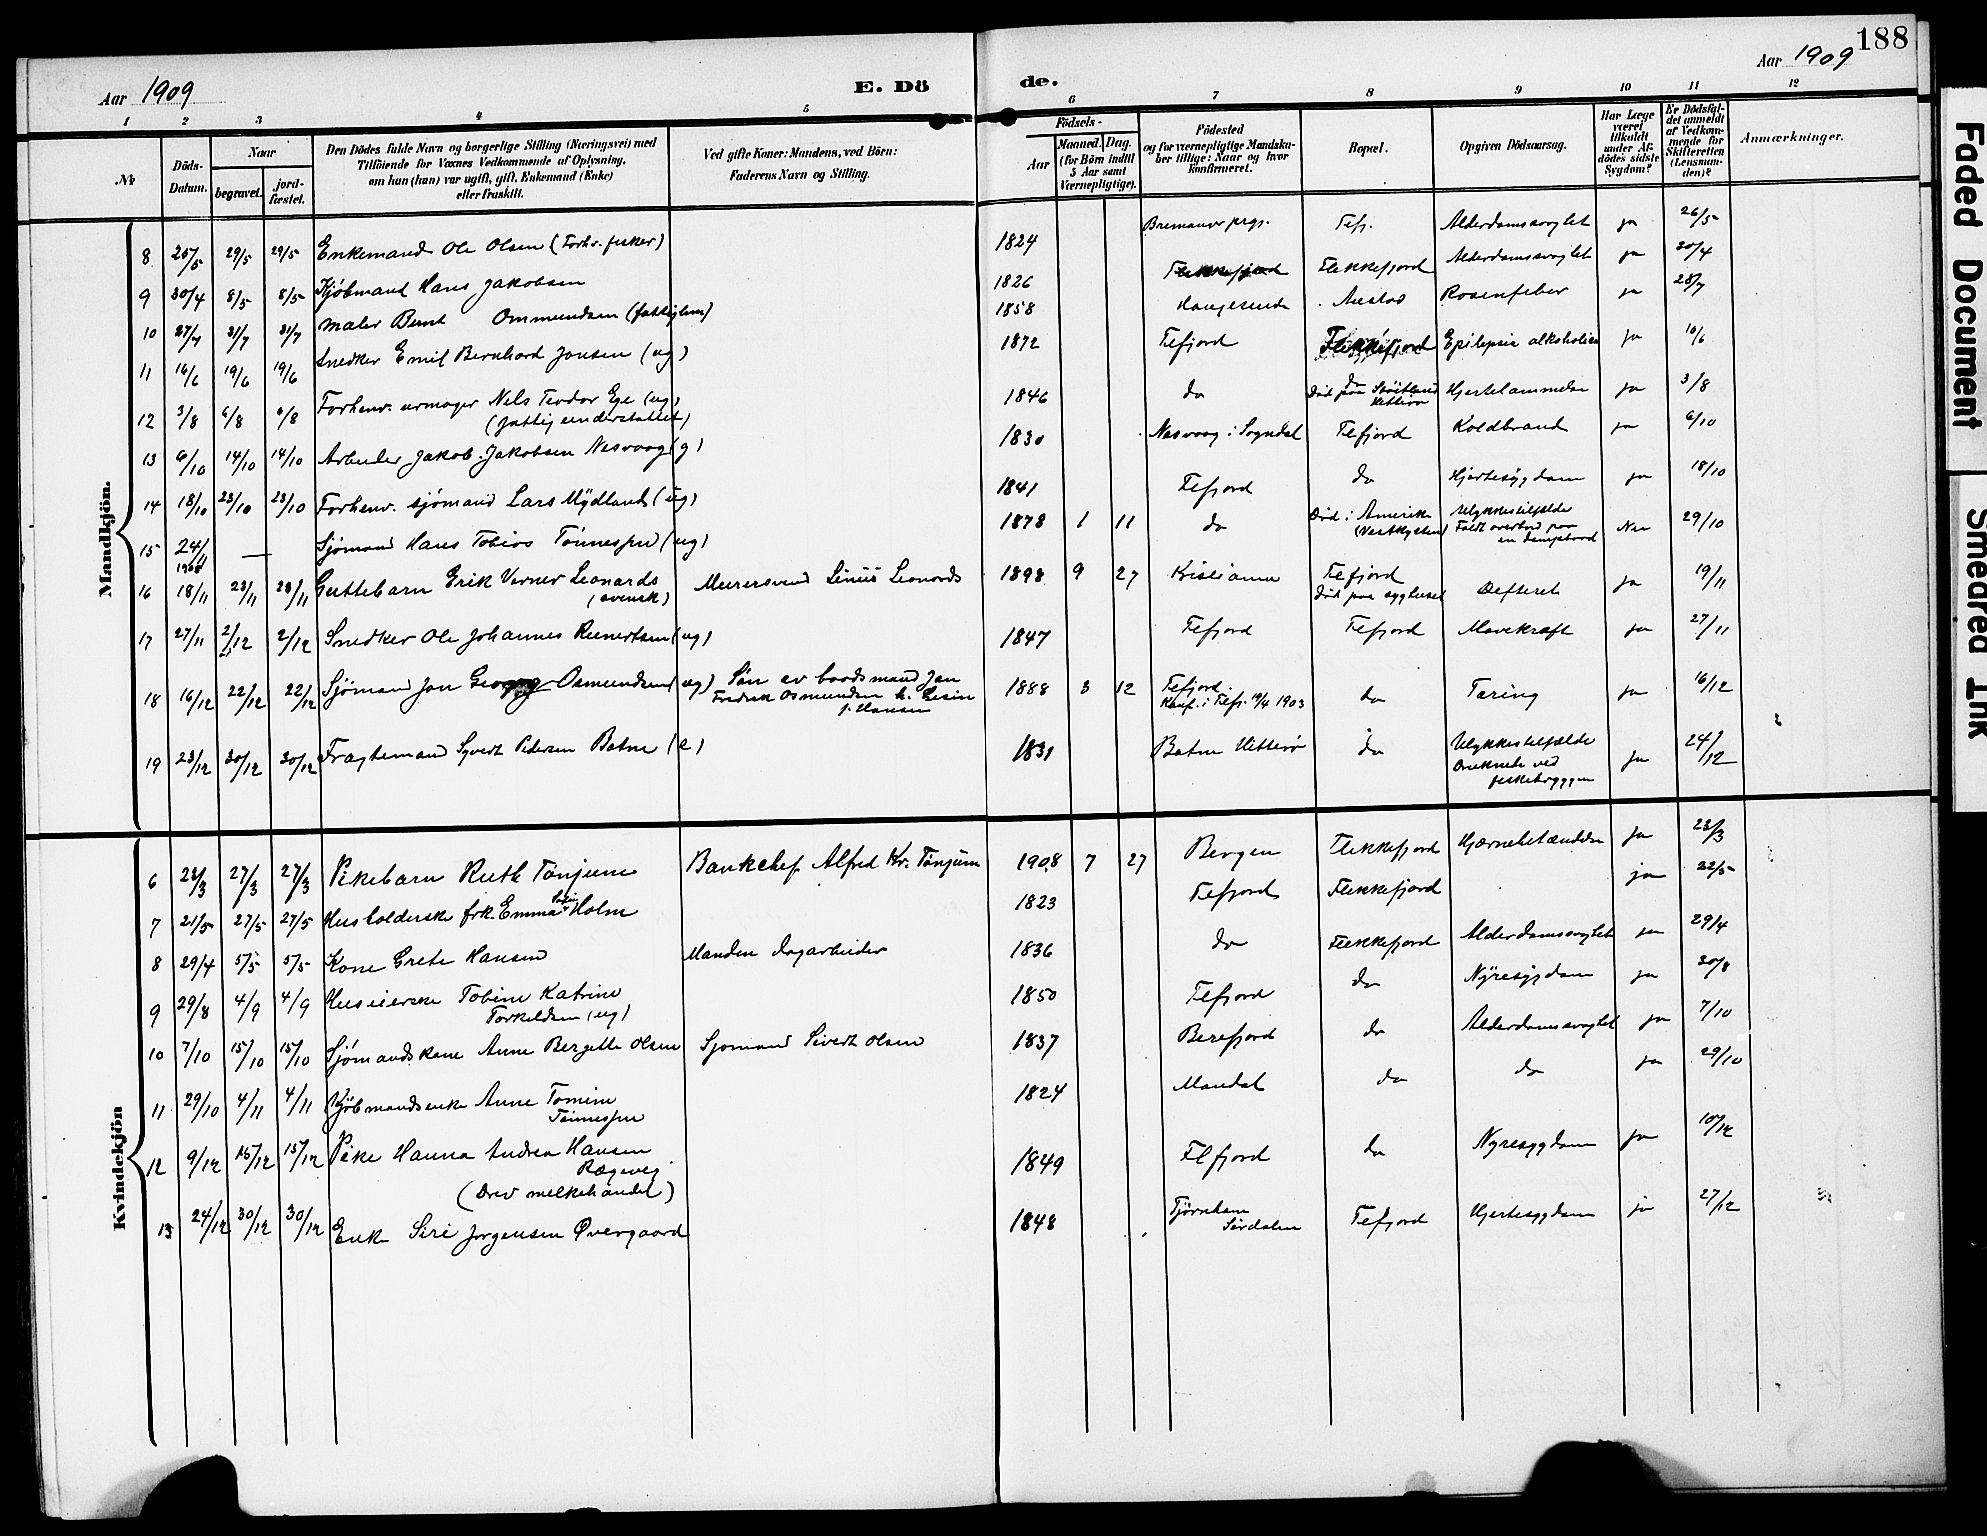 188
Aar 1909
E. Dö
de.
Aar 1909
1 2 3 4 5 6 7 8 9 10 11 12
No.
Döds-Datum.
Naar
begravet.
jord-fæstet.
Den Dödes fulde Navn og borgerlige Stilling (Næringsvei) med
Tilföiende for Voxnes Vedkommende af Oplysning,
om han (hun) var ugift, gift, Enkemand (Enke)
eller fraskilt.
Ved gifte Koner: Mandens, ved Börn:
Faderens Navn og Stilling.
Födsels-
Aar
Maaned. Dag.
(for Börn indtil
5 Aar samt
Værnepligtige).
Födested
og for værnepligtige Mandska-
ber tillige: Naar og hvor
konfirmeret.
Bopæl.
Opgiven Dödsaarsag.
Har Læge
været
tilkaldt
under Af-
dödes sidste
Sygdom?
Er Dödsfal-
det anmeldt
af Vedkom-
mende for
Skifteretten
(Lensman-
den)?
Anmærkninger.
Mandkjön.
8 25/5 29/5 29/5 Enkemand Ole Olsen (Forhv. fisker) 1824 Bremanger prgj. Fefj. Alderdomssvaghet ja 26/5
9 30/4 8/5 8/5 Kjøbmand Hans Jakobsen 1826 Flekkefjord Flekkefjord Alderdomssvaghet ja 30/4
10 27/7 31/7 31/7 Maler Bernt Ommundsen (fattiglem) 1858 Haugesund Rosenfeber ja 28/7
11 16/6 19/6 19/6 Snedker Emil Bernhard Jonsen (ug) 1872 Fefjord Flekkefjord Epilepsia alkoholica ja 16/6
12 3/8 6/8 6/8 Forhenv. urmager Nels Teodor Ege (ug)
(fattigunderstøttet) 1846 do do
Død paa
Hitterø Hjertelammelse ja 3/8
13 6/10 14/10 14/10 Arbeider Jakob Jakobsen Nesvaag (g) 1830 Nesvaag i Sogndal Fefjord Koldbrand ja 6/10
14 18/10 23/10 23/10 Forhenv. sjømand Lars Mydland (ug) 1841 Fefjord do Hjertesygdom ja 18/10
15 24/11 1908 — Sjømand Hans Tobias Tønnessen (ug) 1878 1 11 do Død i Amerika
(Vestkysten) Ulykkestilfælde
Faldt overbord paa
en dampbaad Nei 29/10
16 18/11 23/11 23/11 Guttebarn Erik Verner Leonards
(svensk) Murersvend Linus Leonards 1898 9 27 Kristiania Fefjord
Død paa syghuset Difterit ja 19/11
17 27/11 2/12 2/12 Snedker Ole Johannes Reinertsen (ug) 1847 Fefjord Fefjord Mavekræft ja 27/11
18 16/12 22/12 22/12 Sjømand Jan Georg Osmundsen (ug) Søn av baadsmand Jan
Fredrik Osmundsen h. Gesine
f. Hansen 1888 3 12 Fefjord.
Konf. i Flfj. 19/4 1903 do Tæring ja 16/12
19 23/12 30/12 30/12 Fragtemand Syvert Pedersen Botne (e) 1831 Botne Hitterø do Ulykkestilfælde
Druknede ved
fiskebryggen ja 24/12
Kvindekjön
6 23/3 27/3 27/3 Pikebarn Ruth Tønjum Bankchef Alfred Kr. Tønjum 1908 7 27 Bergen Flekkefjord Hjernebetændelse ja 23/3
7 21/5 27/5 27/5 Husholderske frk. Emma Holm 1823 Fefjord Flekkefjord ja 22/5
8 29/4 5/5 5/5 Kone Grete Hansen Manden dagarbeider 1836 do Flekkefjord Alderdomssvaghet ja 29/4
9 29/8 4/9 4/9 Huseierske Tobine Katrine
Torkeldsen (ug) 1850 Fefjord do Nyresygdom ja 30/8
10 7/10 15/10 15/10 Sjømandskone Anne Bergitte Olsen Sjømand Sivert Olsen 1837 Berefjord do Alderdomssvaghet ja 7/10
11 29/10 4/11 4/11 Kjøbmandsenke Anne Tomine
Tønnessen 1824 Mandal do do ja 29/10
12 9/12 15/12 15/12 Pike Hanna Andrea Hansen
Rægevig
(Drev melkehandel) 1849 Flfjord do Nyresygdom ja 10/12
13 24/12 30/12 30/12 Enke Siri Jørgensen Øvergaard 1848 Tjørnhom
Sirdalen Fefjord Hjertesygdom ja 27/12
Faded Document
Smeared Ink